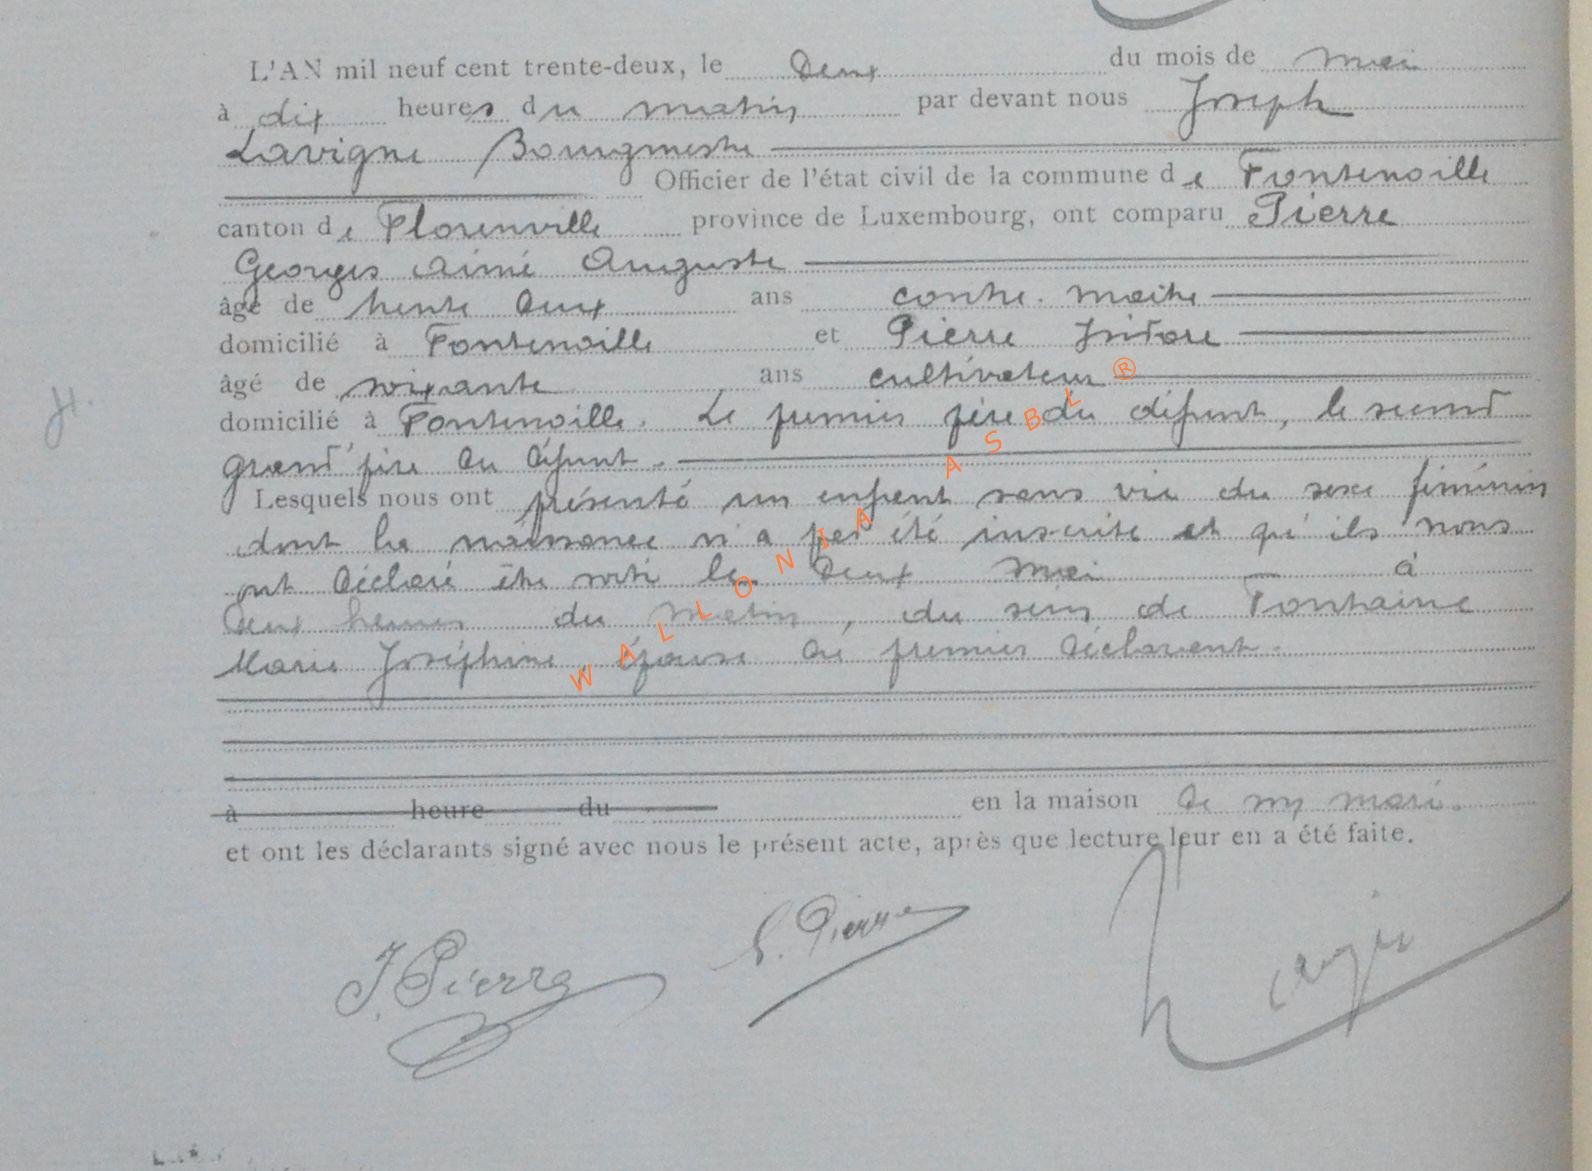 L'AN mil neuf cent trente-deux, le Deux du mois de mai
à dix heures du matin par devant nous Joseph
Lavigne Bourgmestre
Officier de l'état civil de la commune de Fontenoille
canton de Florenville province de Luxembourg, ont comparu Pierre
Georges Aimé Auguste
âgé de trente deux ans contre-maitre
domicilié à Fontenoille et Pierre Isidore
âgé de soixante ans cultivateur
domicilié à Fontenoille. Le premier père du défunt, le second
grand'père du défunt.
Lesquels nous ont présenté un enfant sans vie du sexe féminin
dont la naissance n'a pas été inscrite et qu'ils nous
ont déclaré être sorti le deux mai à
deux heures du matin, du sein de Fontaine
Marie Joséphine, épouse du premier déclarant.
à heure du en la maison de son mari.
et ont les déclarants signé avec nous le présent acte, après que lecture leur en a été faite.
J. Pierre G. Pierre Lavigne
WALLONIA ASBL ®